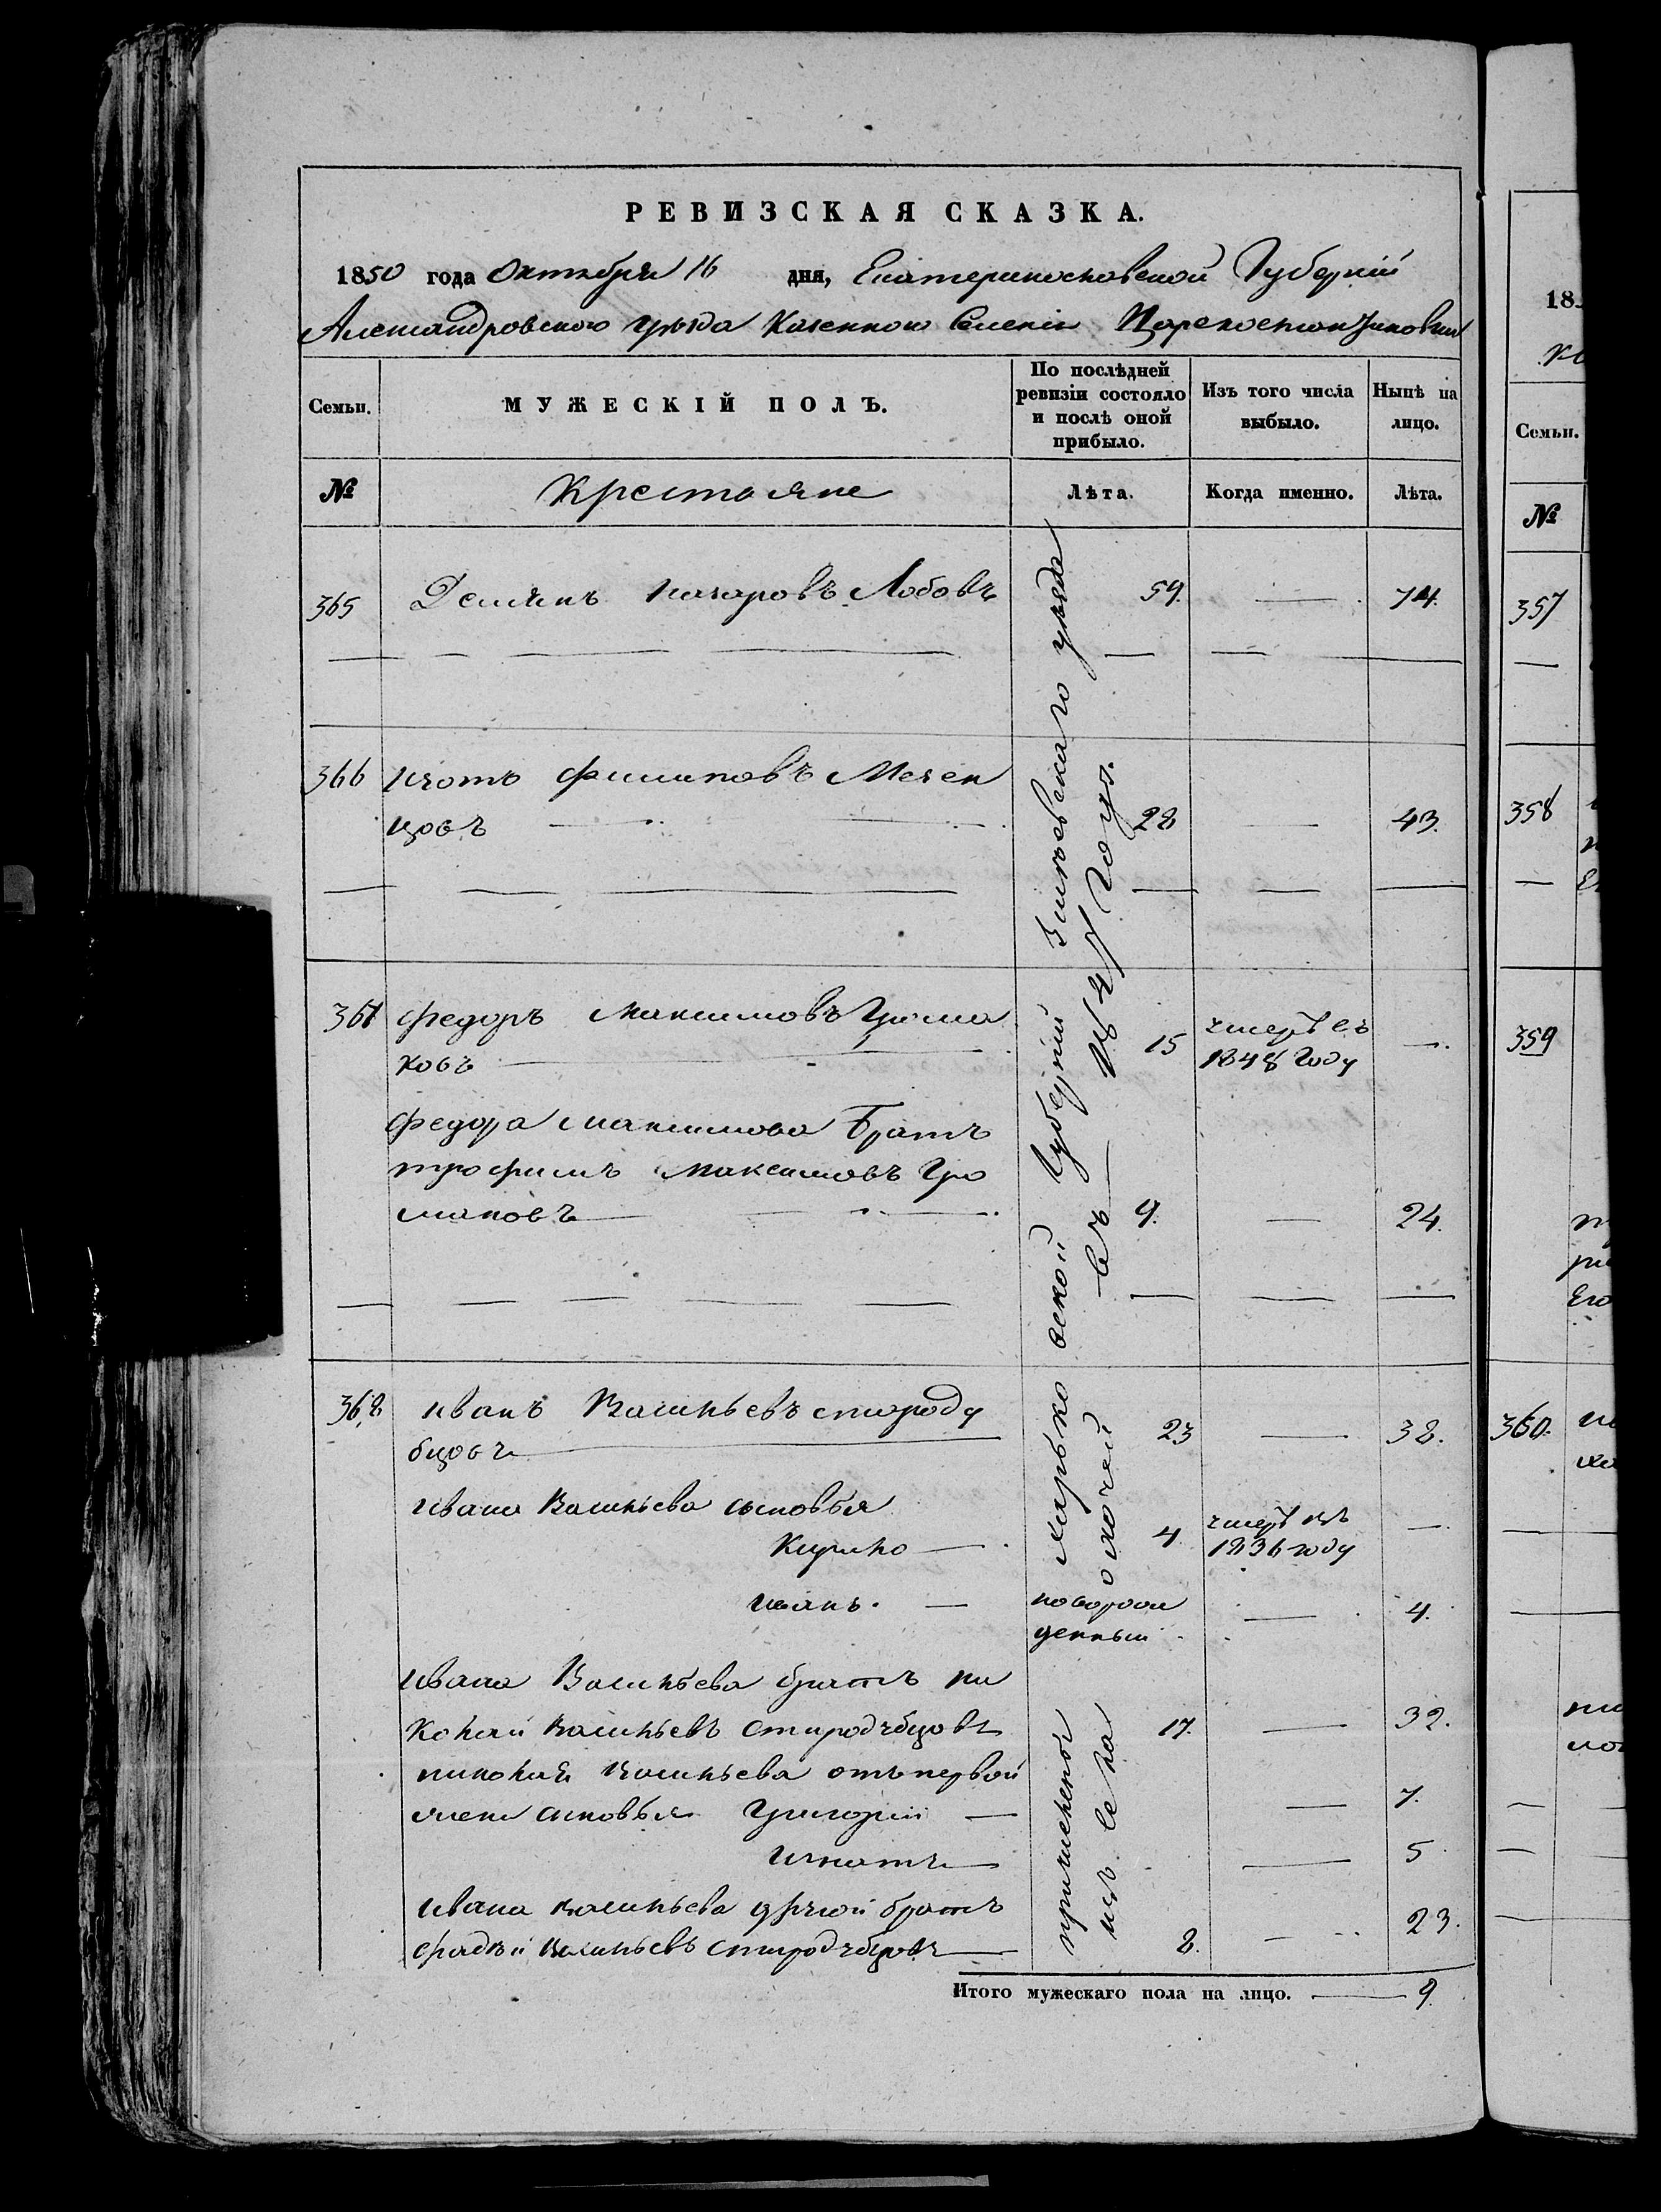 РЕВИЗСКАЯ СКАЗКА.
1850 года Октября 16 дня, Екатеринославской Губерніи
Александровского уезда Казенного Селенія Цареконстантиновки
Семьи.
МУЖЕСКІЙ ПОЛЪ.
По послѣдней ревизіи состояло и послѣ оной прибыло.
Изъ того числа выбыло.
Нынѣ на лицо.
№
Крестьяне
Лѣта.
Когда именно.
Лѣта.
365 Демьянъ Назаровъ Лобовъ 59. — 74.
366 Изотъ Филиповъ Мечен
цовъ 28 — 43.
367 Федоръ Максимовъ Грома
ковъ 15 умеръ въ 1848 Году —
Федора Максимова Братъ
Трофимъ Максимовъ Гро
маковъ 9. — 24.
368 Иванъ Васильевъ Строду
бцовъ 23 — 38.
Ивана Васильева сыновья
Кирило — 4. умеръ въ 1836 году —
Иванъ. — новорож
денный — 4.
Ивана Васильева братъ Ни
колай Васильевъ Стародубцовъ 17. — 32.
Николая Васильева отъ первой
жены сыновья Григорий — — 7.
Игнатъ — — 5
Ивана Васильева другой братъ
Фадѣй Васильевъ Стародубцовъ — 8. — 23.
причисленой Харьковской Губерніи Зміевскаго уезда
изъ села Охочей въ 1841 Году.
Итого мужескаго пола на лицо. — 9
18
Семьи.
№
357
358
359
360.